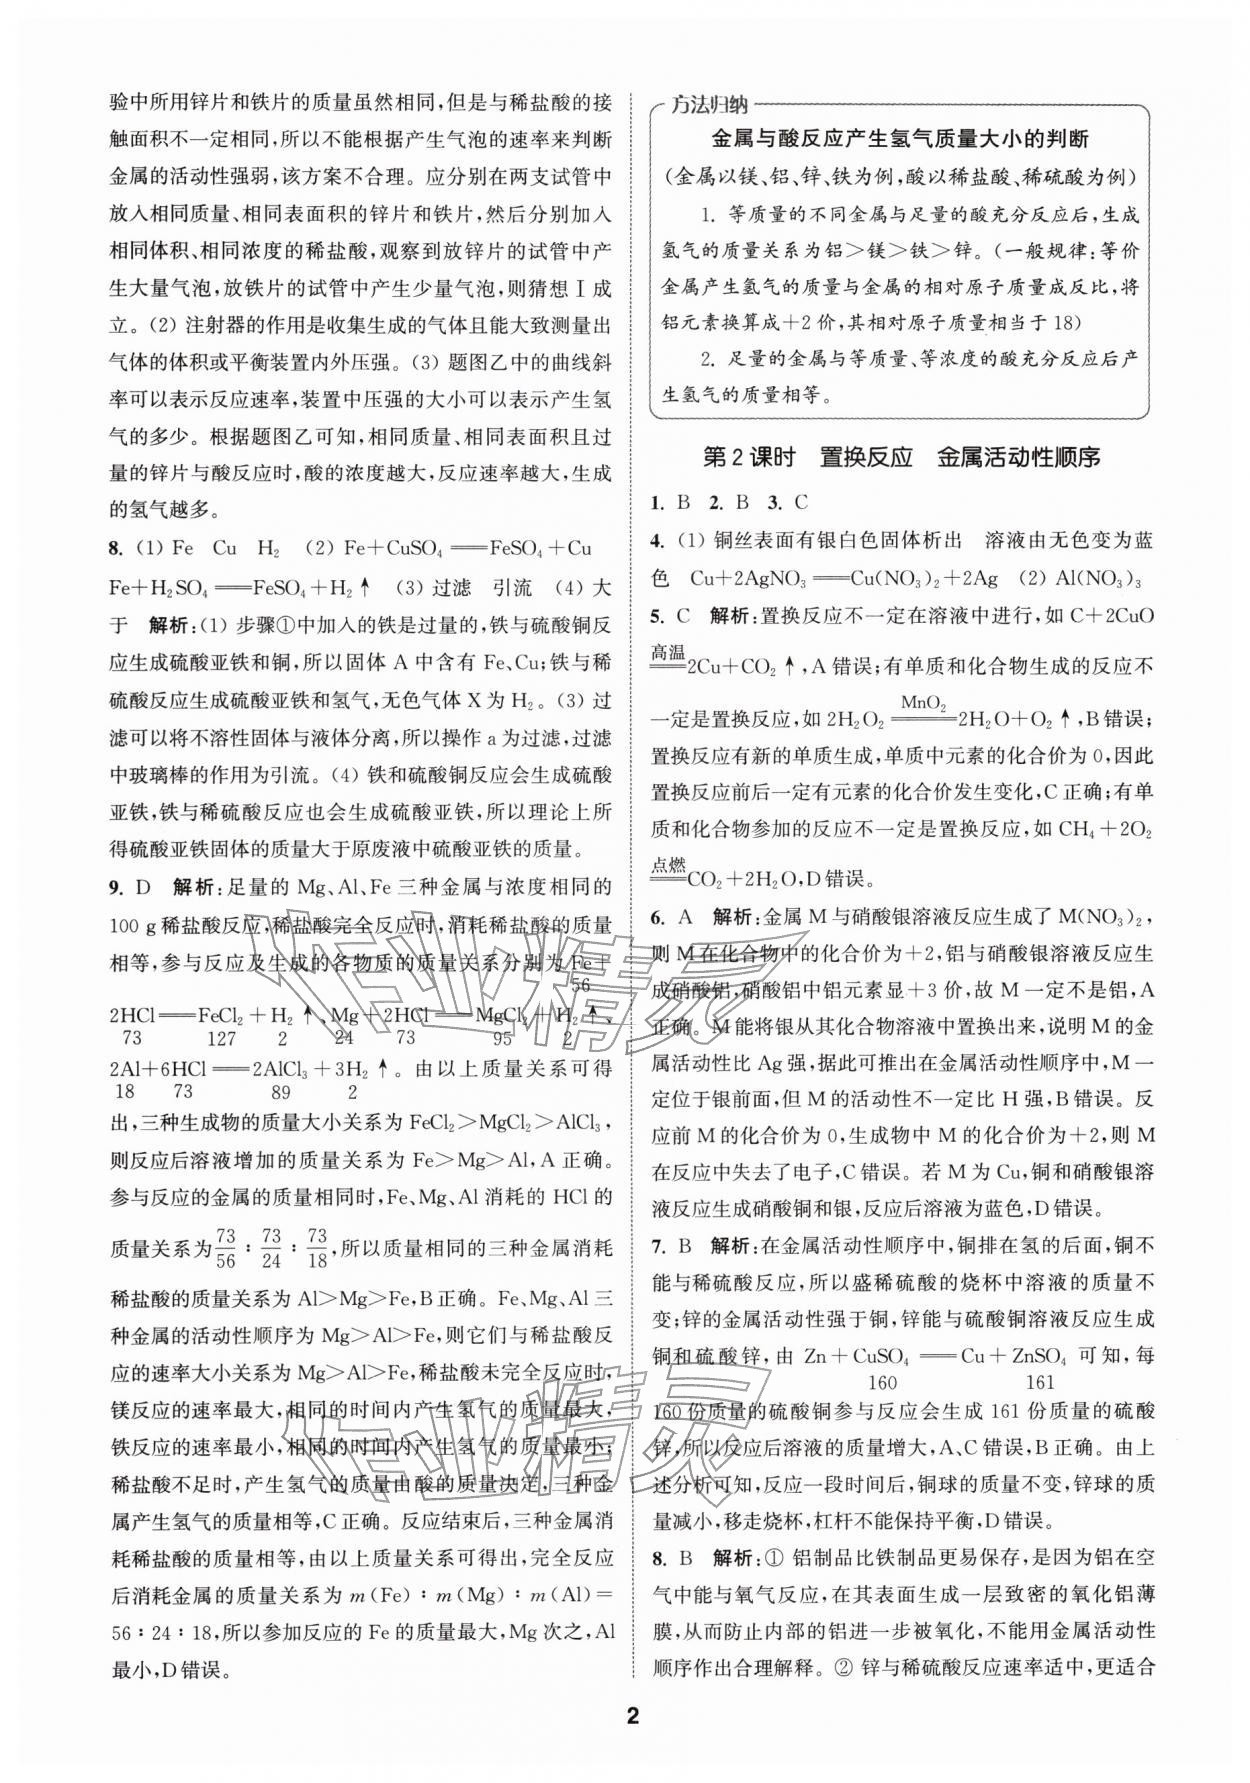 验中所用锌片和铁片的质量虽然相同,但是与稀盐酸的接
触面积不一定相同,所以不能根据产生气泡的速率来判断
金属的活动性强弱,该方案不合理。应分别在两支试管中
放入相同质量、相同表面积的锌片和铁片,然后分别加入
相同体积、相同浓度的稀盐酸,观察到放锌片的试管中产
生大量气泡,放铁片的试管中产生少量气泡,则猜想Ⅰ成
立。(2) 注射器的作用是收集生成的气体且能大致测量出
气体的体积或平衡装置内外压强。(3) 题图乙中的曲线斜
率可以表示反应速率,装置中压强的大小可以表示产生氢
气的多少。根据题图乙可知,相同质量、相同表面积且过
量的锌片与酸反应时,酸的浓度越大,反应速率越大,生成
的氢气越多。
8. (1) Fe Cu H₂ (2) Fe+CuSO₄══FeSO₄+Cu
Fe+H₂SO₄══FeSO₄+H₂↑ (3) 过滤 引流 (4) 大
于 解析:(1) 步骤①中加入的铁是过量的,铁与硫酸铜反
应生成硫酸亚铁和铜,所以固体 A 中含有 Fe、Cu;铁与稀
硫酸反应生成硫酸亚铁和氢气,无色气体 X 为 H₂。(3) 过
滤可以将不溶性固体与液体分离,所以操作 a 为过滤,过滤
中玻璃棒的作用为引流。(4) 铁和硫酸铜反应会生成硫酸
亚铁,铁与稀硫酸反应也会生成硫酸亚铁,所以理论上所
得硫酸亚铁固体的质量大于原废液中硫酸亚铁的质量。
9. D 解析:足量的 Mg、Al、Fe 三种金属与浓度相同的
100 g 稀盐酸反应,稀盐酸完全反应时,消耗稀盐酸的质量
相等,参与反应及生成的各物质的质量关系分别为 Fe+
56
2HCl══FeCl₂+H₂↑、Mg+2HCl══MgCl₂+H₂↑、
73 127 2 24 73 95 2
2Al+6HCl══2AlCl₃+3H₂↑。由以上质量关系可得
18 73 89 2
出,三种生成物的质量大小关系为 FeCl₂>MgCl₂>AlCl₃,
则反应后溶液增加的质量关系为 Fe>Mg>Al,A 正确。
参与反应的金属的质量相同时,Fe、Mg、Al 消耗的 HCl 的
质量关系为73/56∶73/24∶73/18,所以质量相同的三种金属消耗
稀盐酸的质量关系为 Al>Mg>Fe,B 正确。Fe、Mg、Al 三
种金属的活动性顺序为 Mg>Al>Fe,则它们与稀盐酸反
应的速率大小关系为 Mg>Al>Fe,稀盐酸未完全反应时,
镁反应的速率最大,相同的时间内产生氢气的质量最大,
铁反应的速率最小,相同的时间内产生氢气的质量最小;
稀盐酸不足时,产生氢气的质量由酸的质量决定,三种金
属产生氢气的质量相等,C 正确。反应结束后,三种金属消
耗稀盐酸的质量相等,由以上质量关系可得出,完全反应
后消耗金属的质量关系为 m(Fe)∶m(Mg)∶m(Al)=
56∶24∶18,所以参加反应的 Fe 的质量最大,Mg 次之,Al
最小,D 错误。
方法归纳
金属与酸反应产生氢气质量大小的判断
(金属以镁、铝、锌、铁为例,酸以稀盐酸、稀硫酸为例)
1. 等质量的不同金属与足量的酸充分反应后,生成
氢气的质量关系为铝>镁>铁>锌。(一般规律:等价
金属产生氢气的质量与金属的相对原子质量成反比,将
铝元素换算成+2 价,其相对原子质量相当于 18)
2. 足量的金属与等质量、等浓度的酸充分反应后产
生氢气的质量相等。
第 2 课时 置换反应 金属活动性顺序
1. B 2. B 3. C
4. (1) 铜丝表面有银白色固体析出 溶液由无色变为蓝
色 Cu+2AgNO₃══Cu(NO₃)₂+2Ag (2) Al(NO₃)₃
5. C 解析:置换反应不一定在溶液中进行,如 C+2CuO
高温══2Cu+CO₂↑,A 错误;有单质和化合物生成的反应不
一定是置换反应,如 2H₂O₂ MnO₂══2H₂O+O₂↑,B 错误;
置换反应有新的单质生成,单质中元素的化合价为 0,因此
置换反应前后一定有元素的化合价发生变化,C 正确;有单
质和化合物参加的反应不一定是置换反应,如 CH₄+2O₂
点燃══CO₂+2H₂O,D 错误。
6. A 解析:金属 M 与硝酸银溶液反应生成了 M(NO₃)₂,
则 M 在化合物中的化合价为+2,铝与硝酸银溶液反应生
成硝酸铝,硝酸铝中铝元素显+3 价,故 M 一定不是铝,A
正确。M 能将银从其化合物溶液中置换出来,说明 M 的金
属活动性比 Ag 强,据此可推出在金属活动性顺序中,M 一
定位于银前面,但 M 的活动性不一定比 H 强,B 错误。反
应前 M 的化合价为 0,生成物中 M 的化合价为+2,则 M
在反应中失去了电子,C 错误。若 M 为 Cu,铜和硝酸银溶
液反应生成硝酸铜和银,反应后溶液为蓝色,D 错误。
7. B 解析:在金属活动性顺序中,铜排在氢的后面,铜不
能与稀硫酸反应,所以盛稀硫酸的烧杯中溶液的质量不
变;锌的金属活动性强于铜,锌能与硫酸铜溶液反应生成
铜和硫酸锌,由 Zn+CuSO₄══Cu+ZnSO₄ 可知,每
160 161
160 份质量的硫酸铜参与反应会生成 161 份质量的硫酸
锌,所以反应后溶液的质量增大,A、C 错误,B 正确。由上
述分析可知,反应一段时间后,铜球的质量不变,锌球的质
量减小,移走烧杯,杠杆不能保持平衡,D 错误。
8. B 解析:① 铝制品比铁制品更易保存,是因为铝在空
气中能与氧气反应,在其表面生成一层致密的氧化铝薄
膜,从而防止内部的铝进一步被氧化,不能用金属活动性
顺序作出合理解释。② 锌与稀硫酸反应速率适中,更适合
2
作业精灵
作业精灵